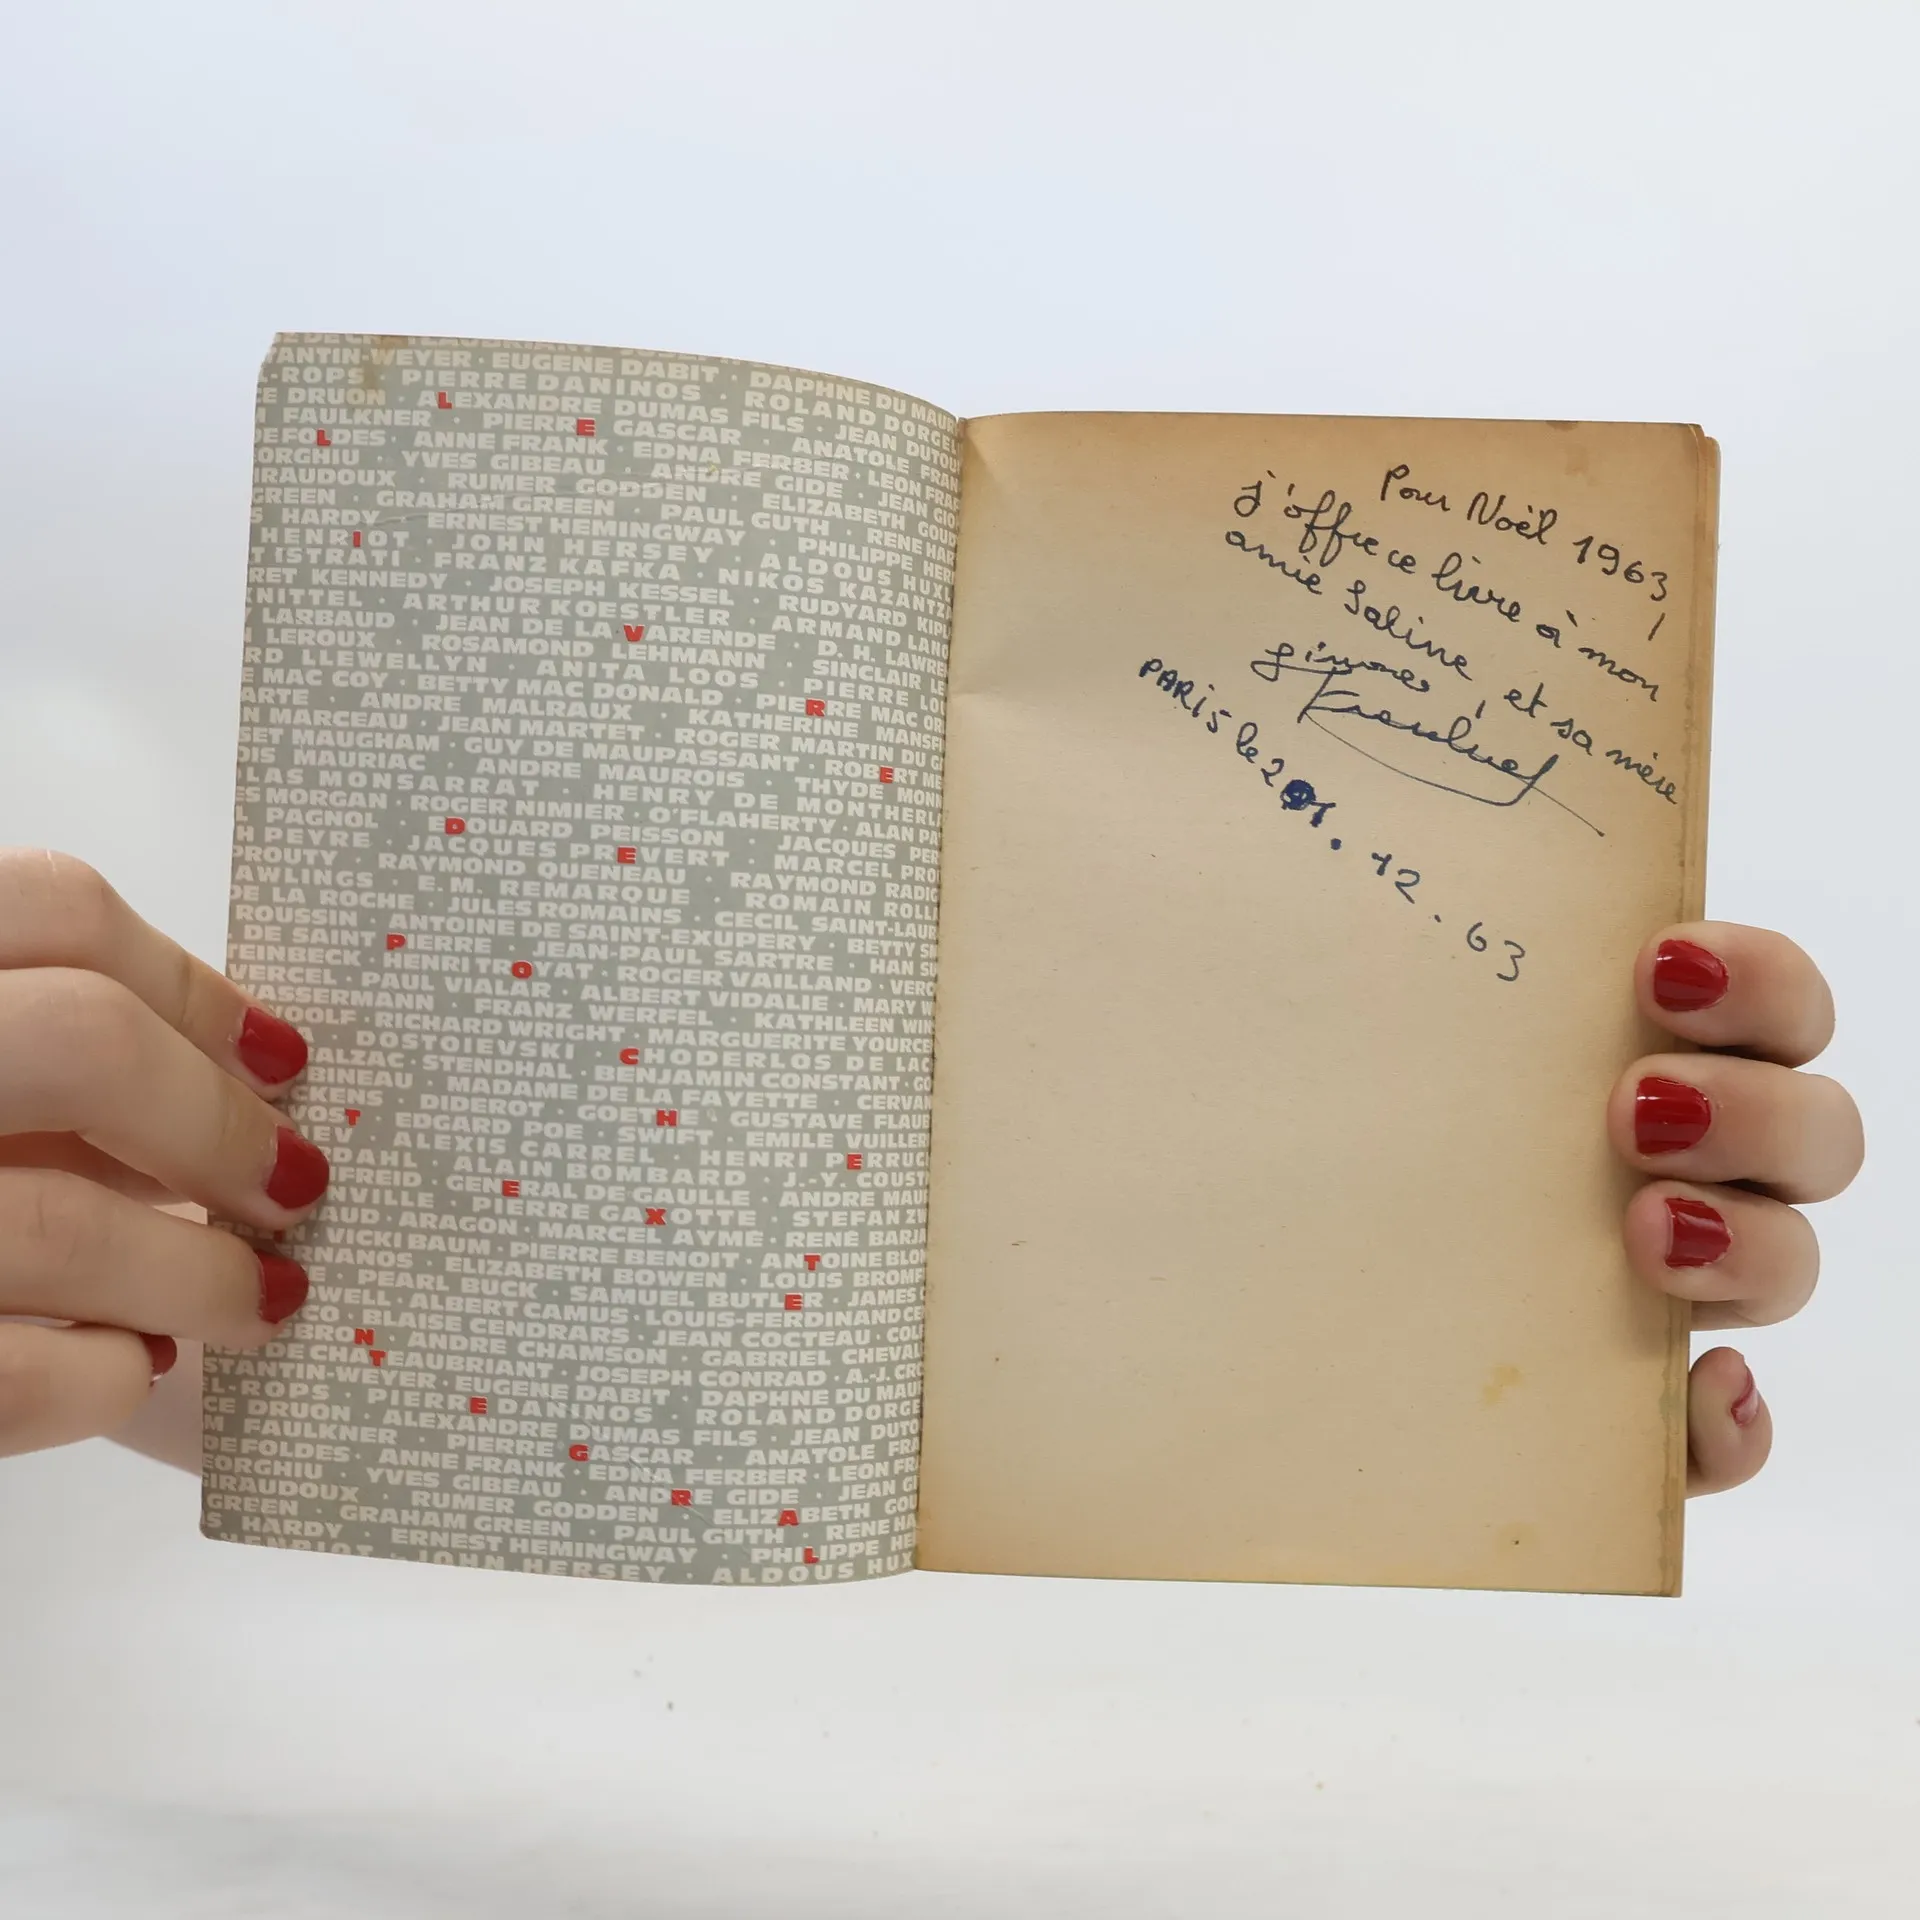 TANTIN-WEYER · EUGENE DABIT · DAPHNE DU MAUR
L-ROPS · PIERRE DANINOS · ROLAND DORGEL
E DRUON · ALEXANDRE DUMAS FILS · JEAN DUTOU
FAULKNER · PIERRE GASCAR · ANATOLE FRAN
DEFOLDES · ANNE FRANK · EDNA FERBER · LEON FRA
ORGHIU · YVES GIBEAU · ANDRE GIDE · JEAN GIO
RAUDOUX · RUMER GODDEN · ELIZABETH GOUD
GREEN · GRAHAM GREEN · PAUL GUTH · RENE HAR
S HARDY · ERNEST HEMINGWAY · PHILIPPE HER
HENRIOT · JOHN HERSEY · ALDOUS HUXL
T ISTRATI · FRANZ KAFKA · NIKOS KAZANTZA
RET KENNEDY · JOSEPH KESSEL · RUDYARD KIPL
KNITTEL · ARTHUR KOESTLER · ARMAND LANO
LARBAUD · JEAN DE LA VARENDE · D. H. LAWRE
LEROUX · ROSAMOND LEHMANN · SINCLAIR LE
RD LLEWELLYN · ANITA LOOS · PIERRE LOU
E MAC COY · BETTY MAC DONALD · PIERRE MAC OR
ARTE · ANDRE MALRAUX · KATHERINE MANSF
N MARCEAU · JEAN MARTET · ROGER MARTIN DU G
SET MAUGHAM · GUY DE MAUPASSANT · ROBERT ME
OIS MAURIAC · ANDRE MAUROIS · THYDE MONN
LAS MONSARRAT · HENRY DE MONTHERLA
ES MORGAN · ROGER NIMIER · O'FLAHERTY · ALAN PA
L PAGNOL · EDOUARD PEISSON · JACQUES PER
H PEYRE · JACQUES PREVERT · MARCEL PROU
PROUTY · RAYMOND QUENEAU · RAYMOND RADIG
AWLINGS · E. M. REMARQUE · ROMAIN ROLLA
DE LA ROCHE · JULES ROMAINS · CECIL SAINT-LAUR
ROUSSIN · ANTOINE DE SAINT-EXUPERY · BETTY S
DE SAINT PIERRE · JEAN-PAUL SARTRE · HAN SU
TEINBECK · HENRI TROYAT · ROGER VAILLAND · VERC
VERCEL · PAUL VIALAR · ALBERT VIDALIE · MARY W
WASSERMANN · FRANZ WERFEL · KATHLEEN WIN
WOOLF · RICHARD WRIGHT · MARGUERITE YOURCE
DOSTOIEVSKI · CHODERLOS DE LAC
ALZAC · STENDHAL · BENJAMIN CONSTANT · GO
BINEAU · MADAME DE LA FAYETTE · CERVAN
CKENS · DIDEROT · GOETHE · GUSTAVE FLAUB
VOST · EDGARD POE · SWIFT · EMILE VUILLER
EV · ALEXIS CARREL · HENRI PERRUC
DAHL · ALAIN BOMBARD · J.-Y. COUST
FREID · GENERAL DE GAULLE · ANDRE MAU
NVILLE · PIERRE GAXOTTE · STEFAN ZW
AUD · ARAGON · MARCEL AYMÉ · RENÉ BARJA
VICKI BAUM · PIERRE BENOIT · ANTOINE BLON
RNANOS · ELIZABETH BOWEN · LOUIS BROMF
PEARL BUCK · SAMUEL BUTLER · JAMES C
WELL · ALBERT CAMUS · LOUIS-FERDINAND CE
CO · BLAISE CENDRARS · JEAN COCTEAU · COL
BRON · ANDRE CHAMSON · GABRIEL CHEVAL
SE DE CHATEAUBRIANT · JOSEPH CONRAD · A.-J. CRO
STANTIN-WEYER · EUGENE DABIT · DAPHNE DU MAUR
L-ROPS · PIERRE DANINOS · ROLAND DORGE
CE DRUON · ALEXANDRE DUMAS FILS · JEAN DUTO
M FAULKNER · PIERRE GASCAR · ANATOLE FRA
DEFOLDES · ANNE FRANK · EDNA FERBER · LEON FR
EORGHIU · YVES GIBEAU · ANDRE GIDE · JEAN GI
IRAUDOUX · RUMER GODDEN · ELIZABETH GOU
GREEN · GRAHAM GREEN · PAUL GUTH · RENE HA
S HARDY · ERNEST HEMINGWAY · PHILIPPE HE
HENRIOT · JOHN HERSEY · ALDOUS HUX
Pour Noël 1963,
j'offre ce livre à mon
amie Saline, et sa mère
PARIS le 2 . 12 . 63